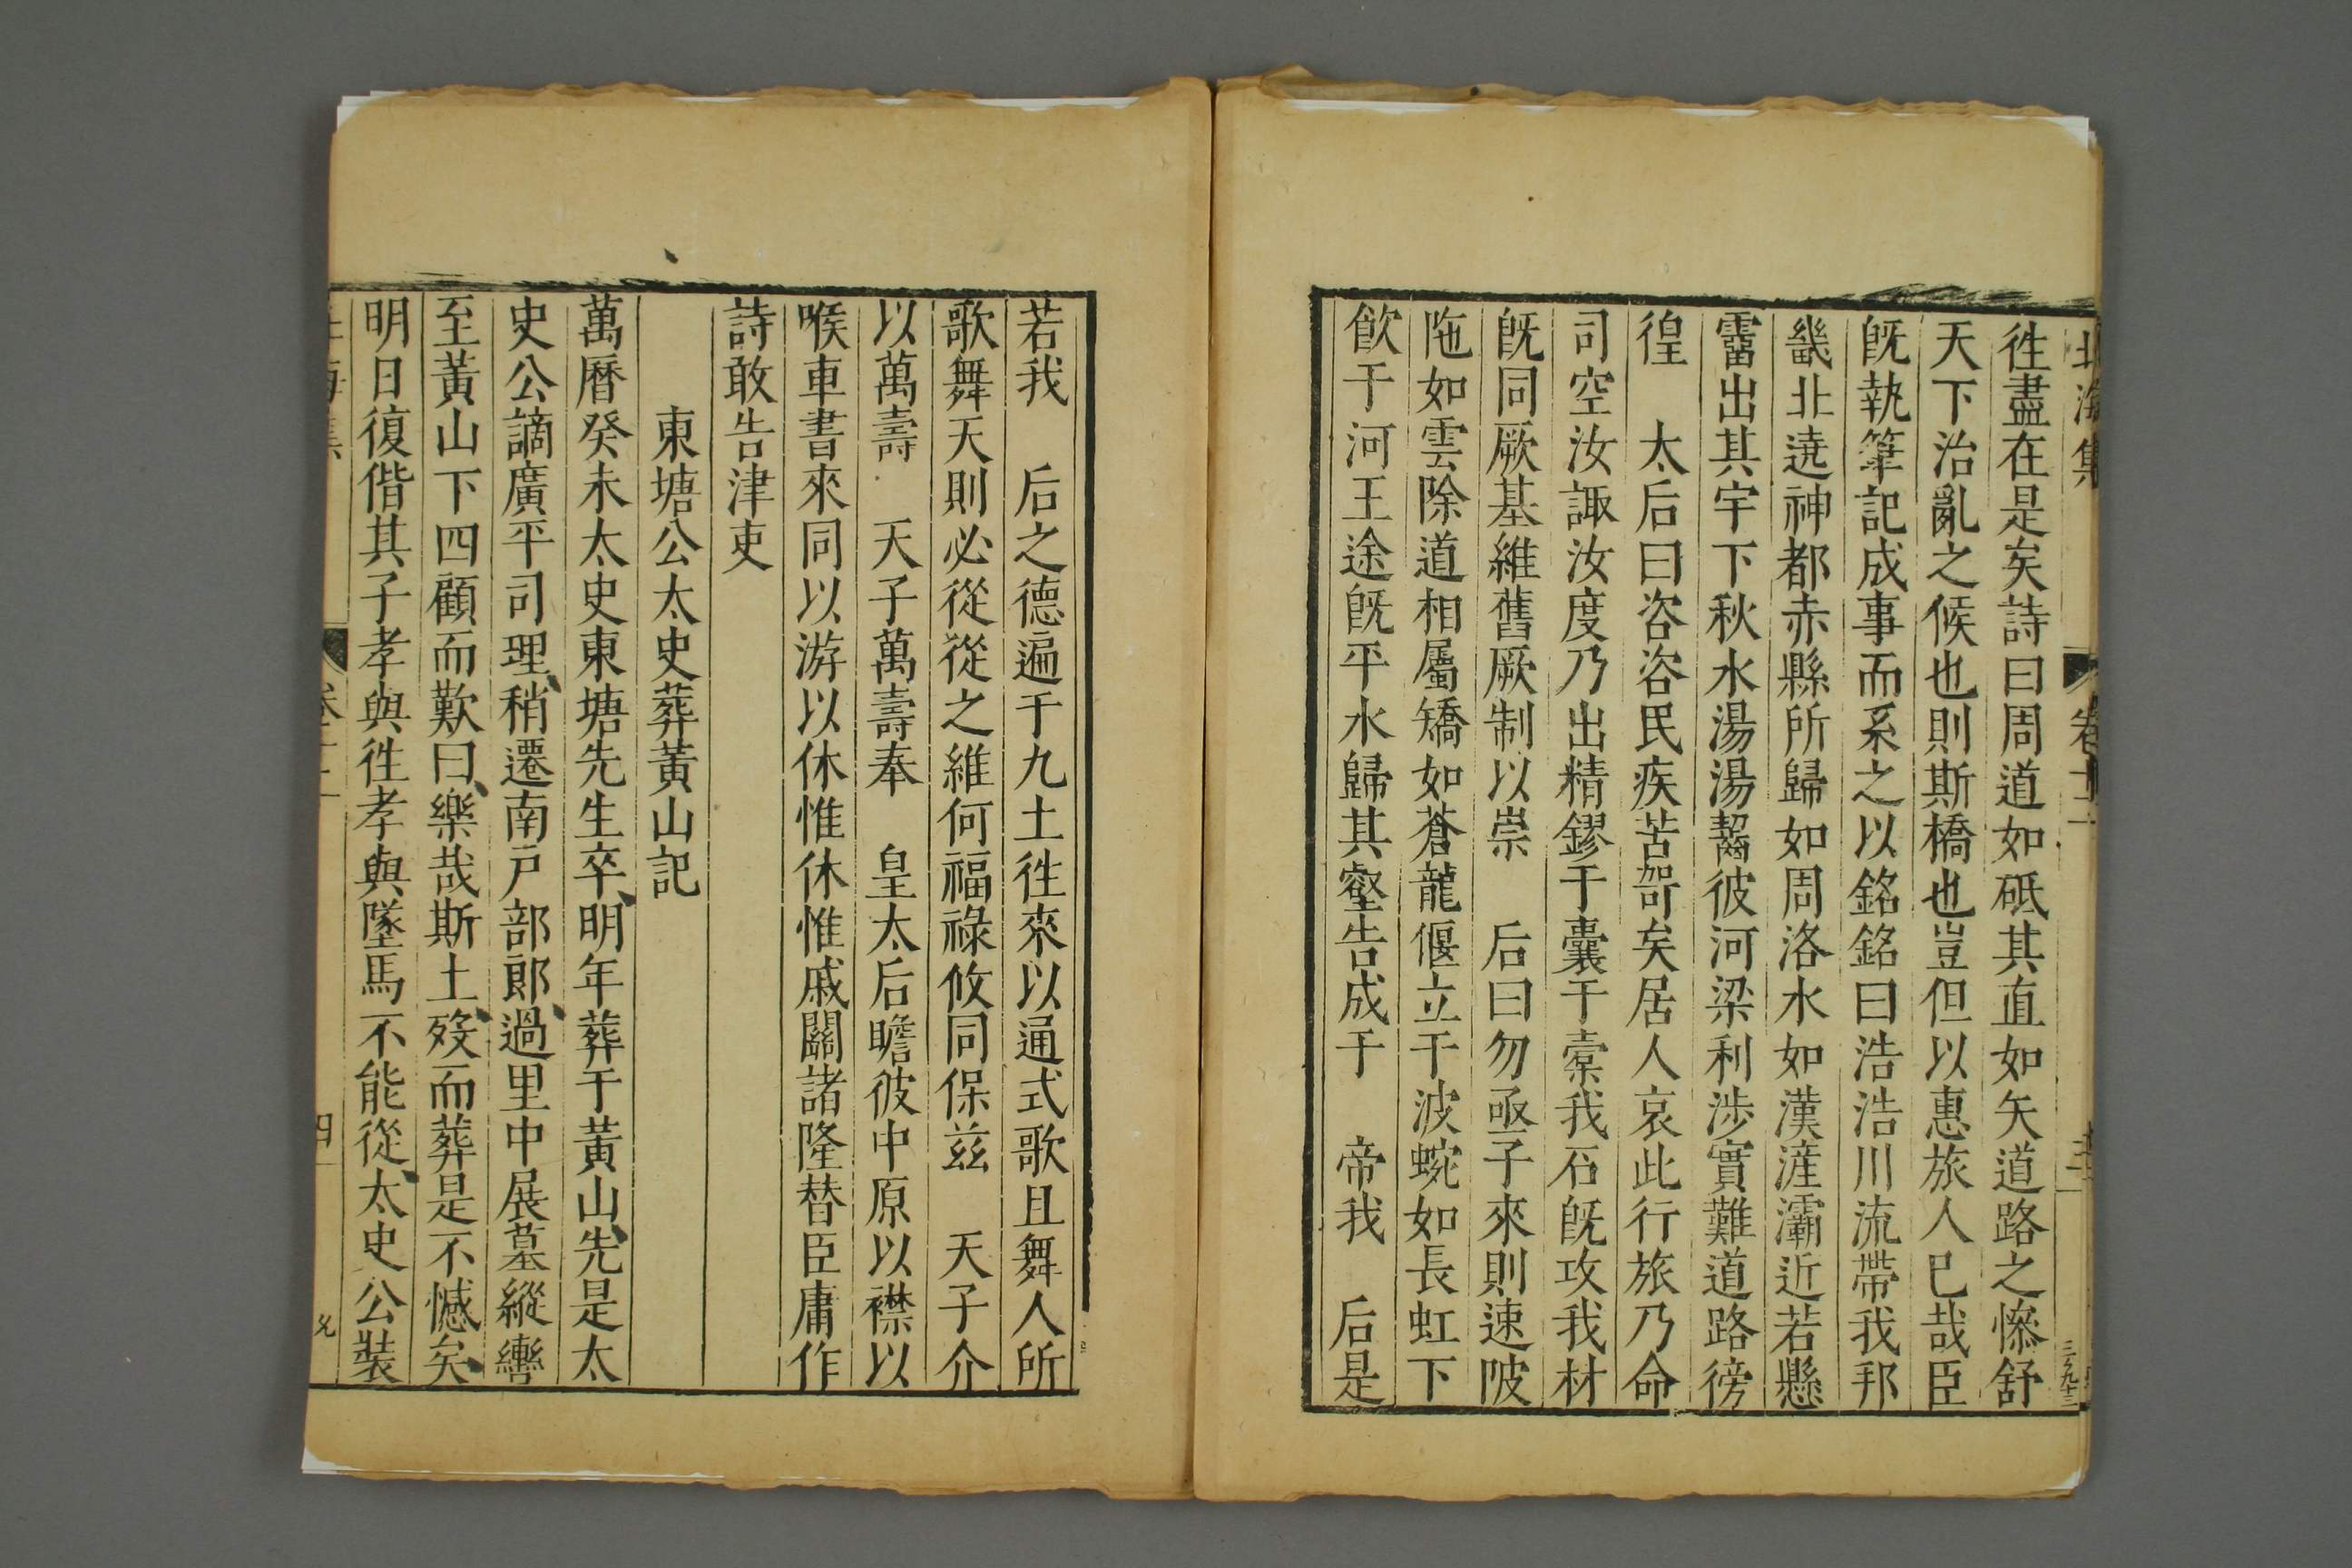 北海集 卷十二
徃盡在是矣詩曰周道如砥其直如矢道路之慘舒
天下治亂之候也則斯橋也豈但以惠旅人已哉臣
旣執筆記成事而系之以銘銘曰浩浩川流帶我邦
畿北遶神都赤縣所歸如周洛水如漢滻灞近若懸
霤出其宇下秋水湯湯齧彼河梁利涉實難道路徬
徨 太后曰咨咨民疾苦哿矣居人哀此行旅乃命
司空汝諏汝度乃出精鏐于囊于橐我石旣攻我材
旣同厥基維舊厥制以崇 后曰勿亟子來則速陂
陁如雲除道相屬矯如蒼龍偃立于波蜿如長虹下
飲于河王途旣平水歸其壑告成于 帝我 后是
若我 后之德遍于九土徃來以通式歌且舞人所
歌舞天則必從從之維何福祿攸同保兹 天子介
以萬壽 天子萬壽奉 皇太后瞻彼中原以襟以
喉車書來同以游以休惟休惟戚關諸隆替臣庸作
詩敢告津吏
東塘公太史葬黃山記
萬曆癸未太史東塘先生卒明年葬于黃山先是太
史公謫廣平司理稍遷南戶部郎過里中展墓縱轡
至黃山下四顧而歎曰樂哉斯土歿而葬是不憾矣
明日復偕其子孝與徃孝與墜馬不能從太史公裝